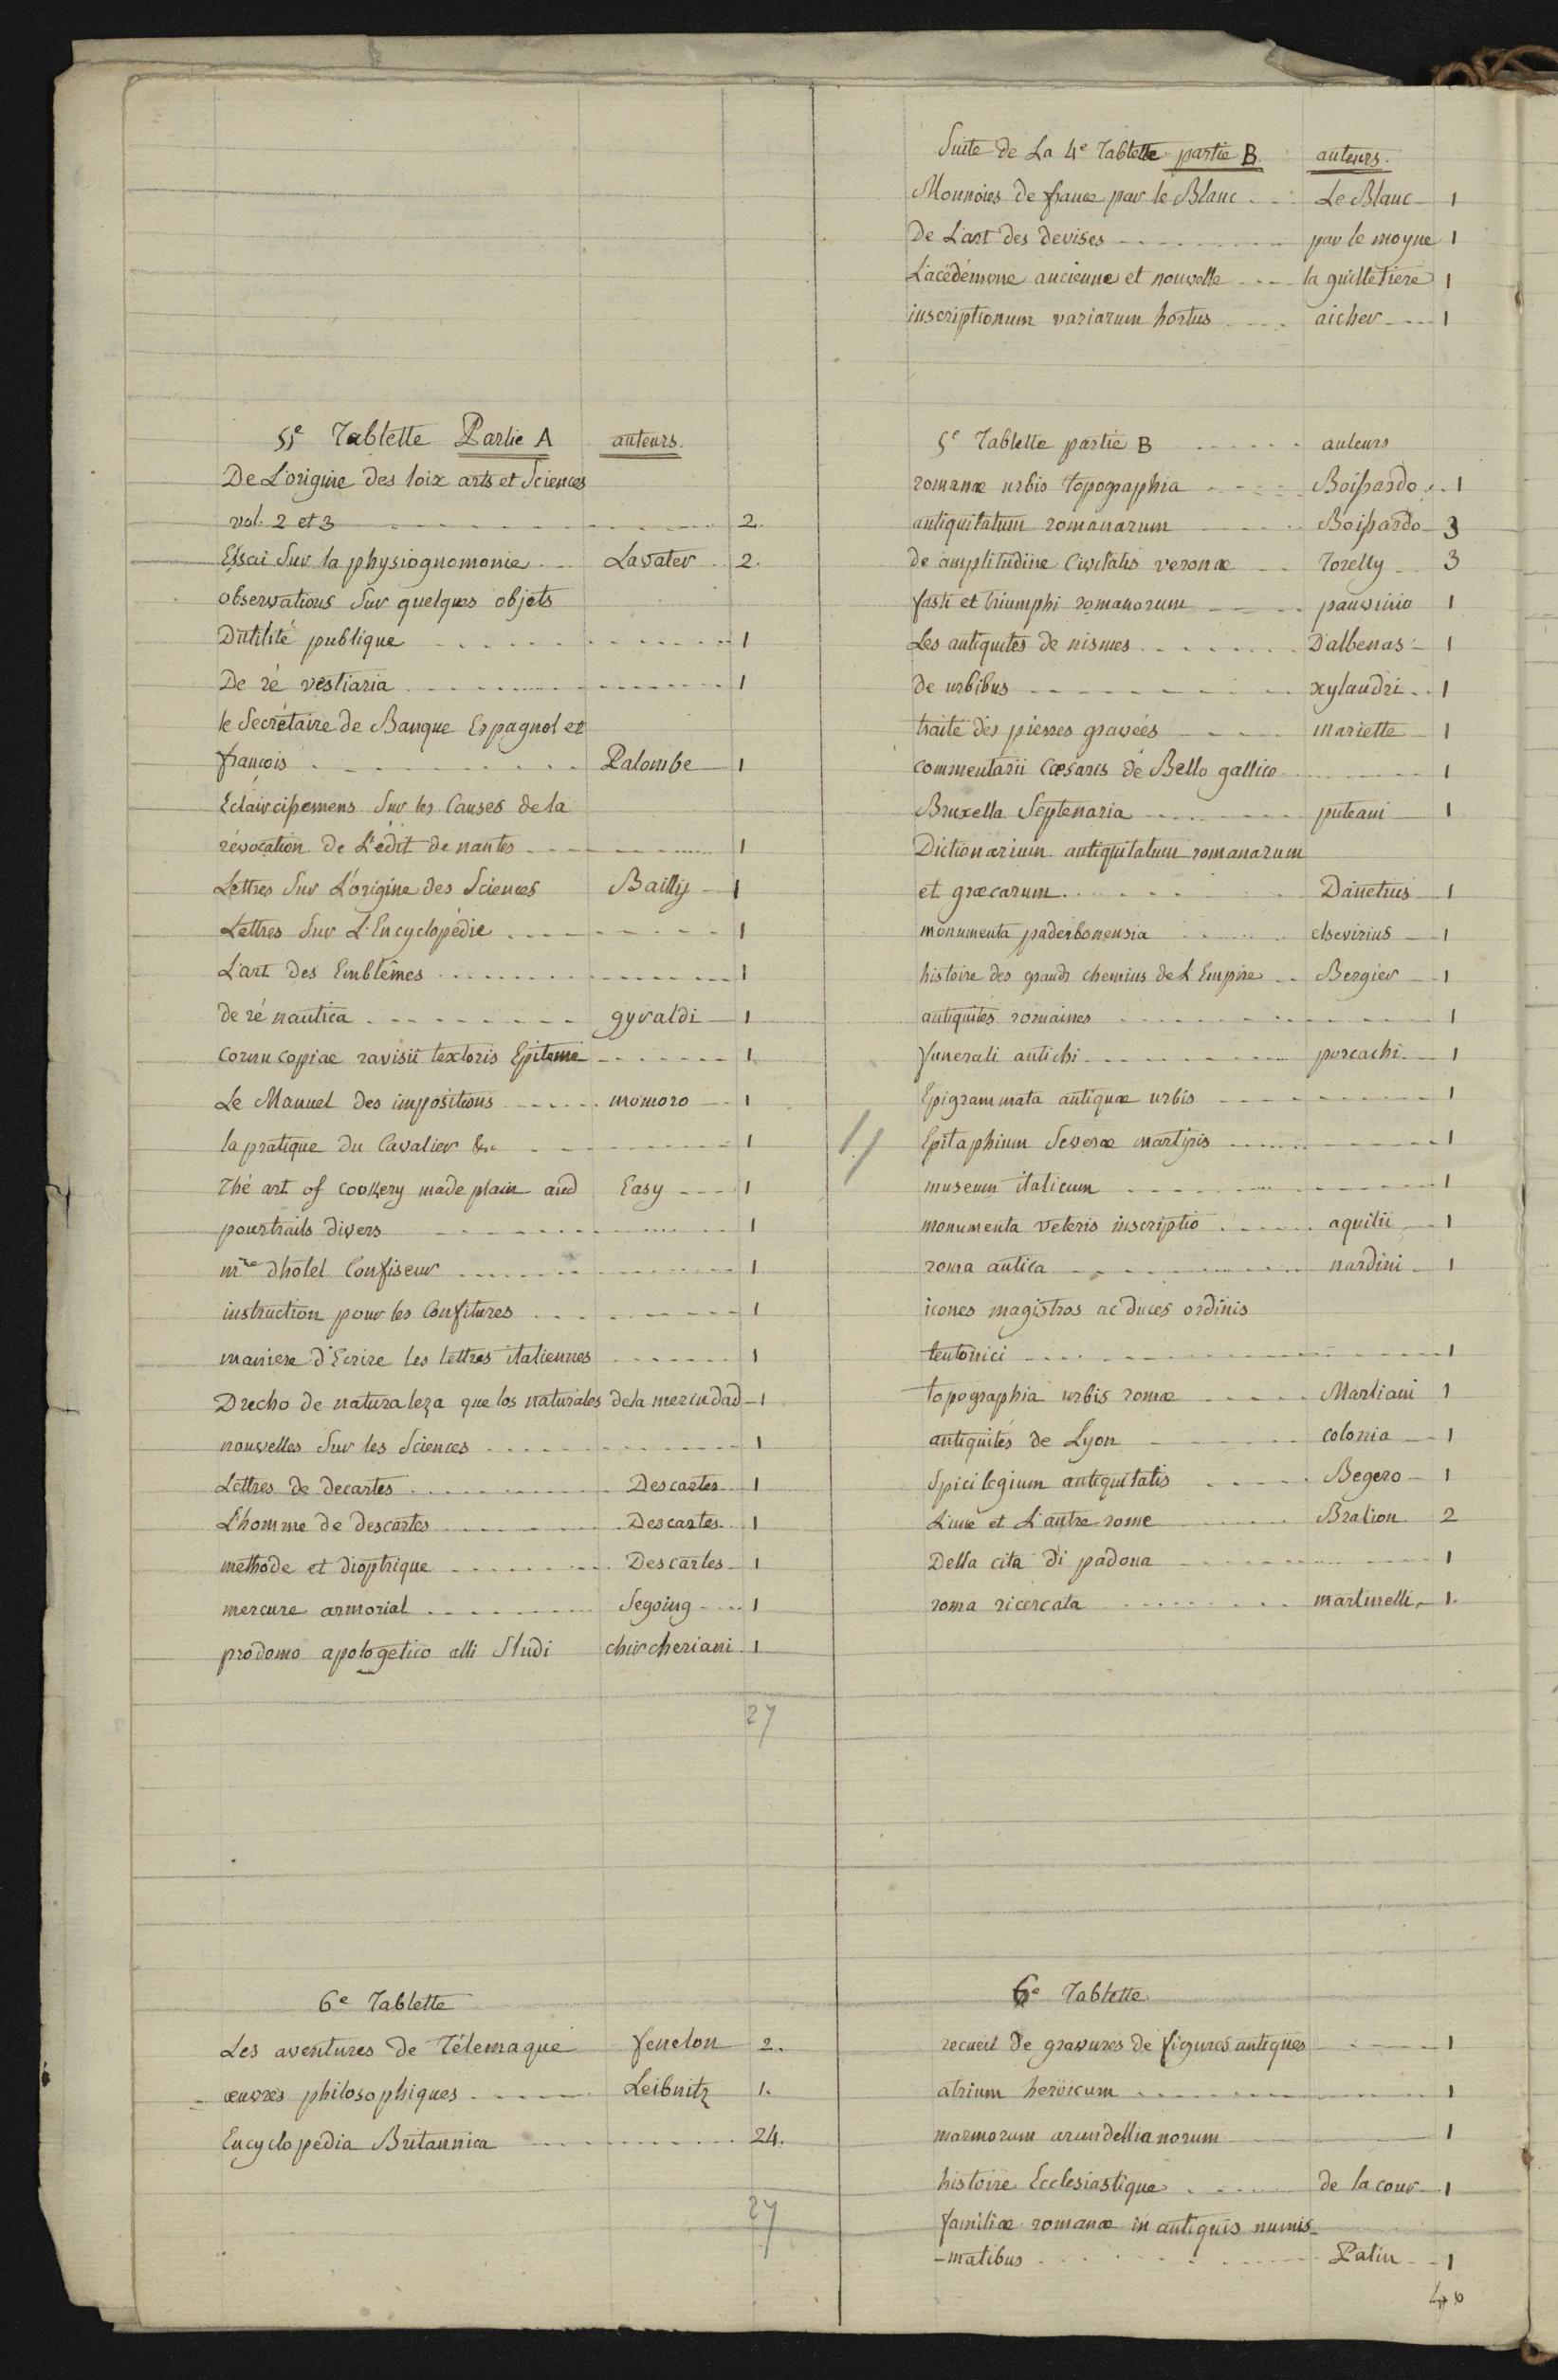 5e Tablette Partie A auteurs.
De L'origine des loix arts et Sciences
vol. 2 et 3 2.
Essai Sur la physiognomonie Lavater 2.
observations Sur quelques objets
D'utilité publique 1
De ré vestiaria 1
le Secrétaire de Banque Espagnol et
françois Palombe 1
Eclaircissemens Sur les Causes de la
révocation de L'édit de nantes 1
Lettres Sur L'origine des Sciences Bailly 1
Lettres Sur L'Encyclopédie 1
L'art des Emblêmes 1
de ré nautica gyraldi 1
Cornu copiae ravisii textoris Epitome 1
Le Manuel des impositions momoro 1
la pratique du Cavalier &c. 1
Thé art of cookery made plain and Easy 1
pourtraits divers 1
mtre dhotel Confiseur 1
instruction pour les Confitures 1
maniere d'Ecrire les lettres italiennes 1
Drecho de naturaleza que los naturales dela merindad 1
nouvelles Sur les Sciences 1
Lettres de decartes Descartes 1
L'homme de Descartes Descartes. 1
méthode et dioptrique Descartes 1
mercure armorial Segoing 1
prodomo apologetico alli Studi chircheriani 1
27
6e Tablette
Les aventures de Télemaque fenelon 2.
œuvres philosophiques Leibnitz 1.
Encyclopedia Britannica 24.
27
Suite de La 4e Tablette partie B. auteurs.
Monnoies de france par le Blanc Le Blanc 1
De L'art des devises par le moyne 1
Lacédémone ancienne et nouvelle la guilletiere 1
inscriptionum variarum hortus aicher 1
5e Tablette partie B auteurs
romanæ urbis topographia Boissardo 1
antiquitatum romanarum Boissardo 3
de amplitudine Civitatis veronæ Torelly 3
fasti et triumphi romanorum panvinio 1
Les antiquités de nismes D'albenas 1
de urbibus xylandri 1
traité des pierres gravées mariette 1
Commentarii Cæsaris de Bello gallico 1
Bruxella Septenaria puteani 1
Dictionarium antiquitatum romanarum
et græcarum Danetius 1
monumenta paderbonensia elsevirius 1
histoire des grands chemins de L'Empire Bergier 1
antiquités romaines 1
funerali antichi porcachi 1
Epigrammata antiquæ urbis 1
Epitaphium Severæ martyris 1
museum italicum 1
monumenta veteris inscriptio aquilii 1
roma antica nardini 1
icones magistros ac duces ordinis
teutonici 1
topographia urbis romæ Marliani 1
antiquités de Lyon colonia 1
Spicilegium antiquitatis Begero 1
L'une et L'autre rome Bralion 2
Della cita di padoua 1
roma ricercata martinelli 1.
6e Tablette
recueil de gravures de figures antiques 1
atrium heröicum 1
marmorum arundellianorum 1
histoire Ecclesiastique de la cour 1
familiæ romanæ in antiquis numis-
-matibus Patin 1